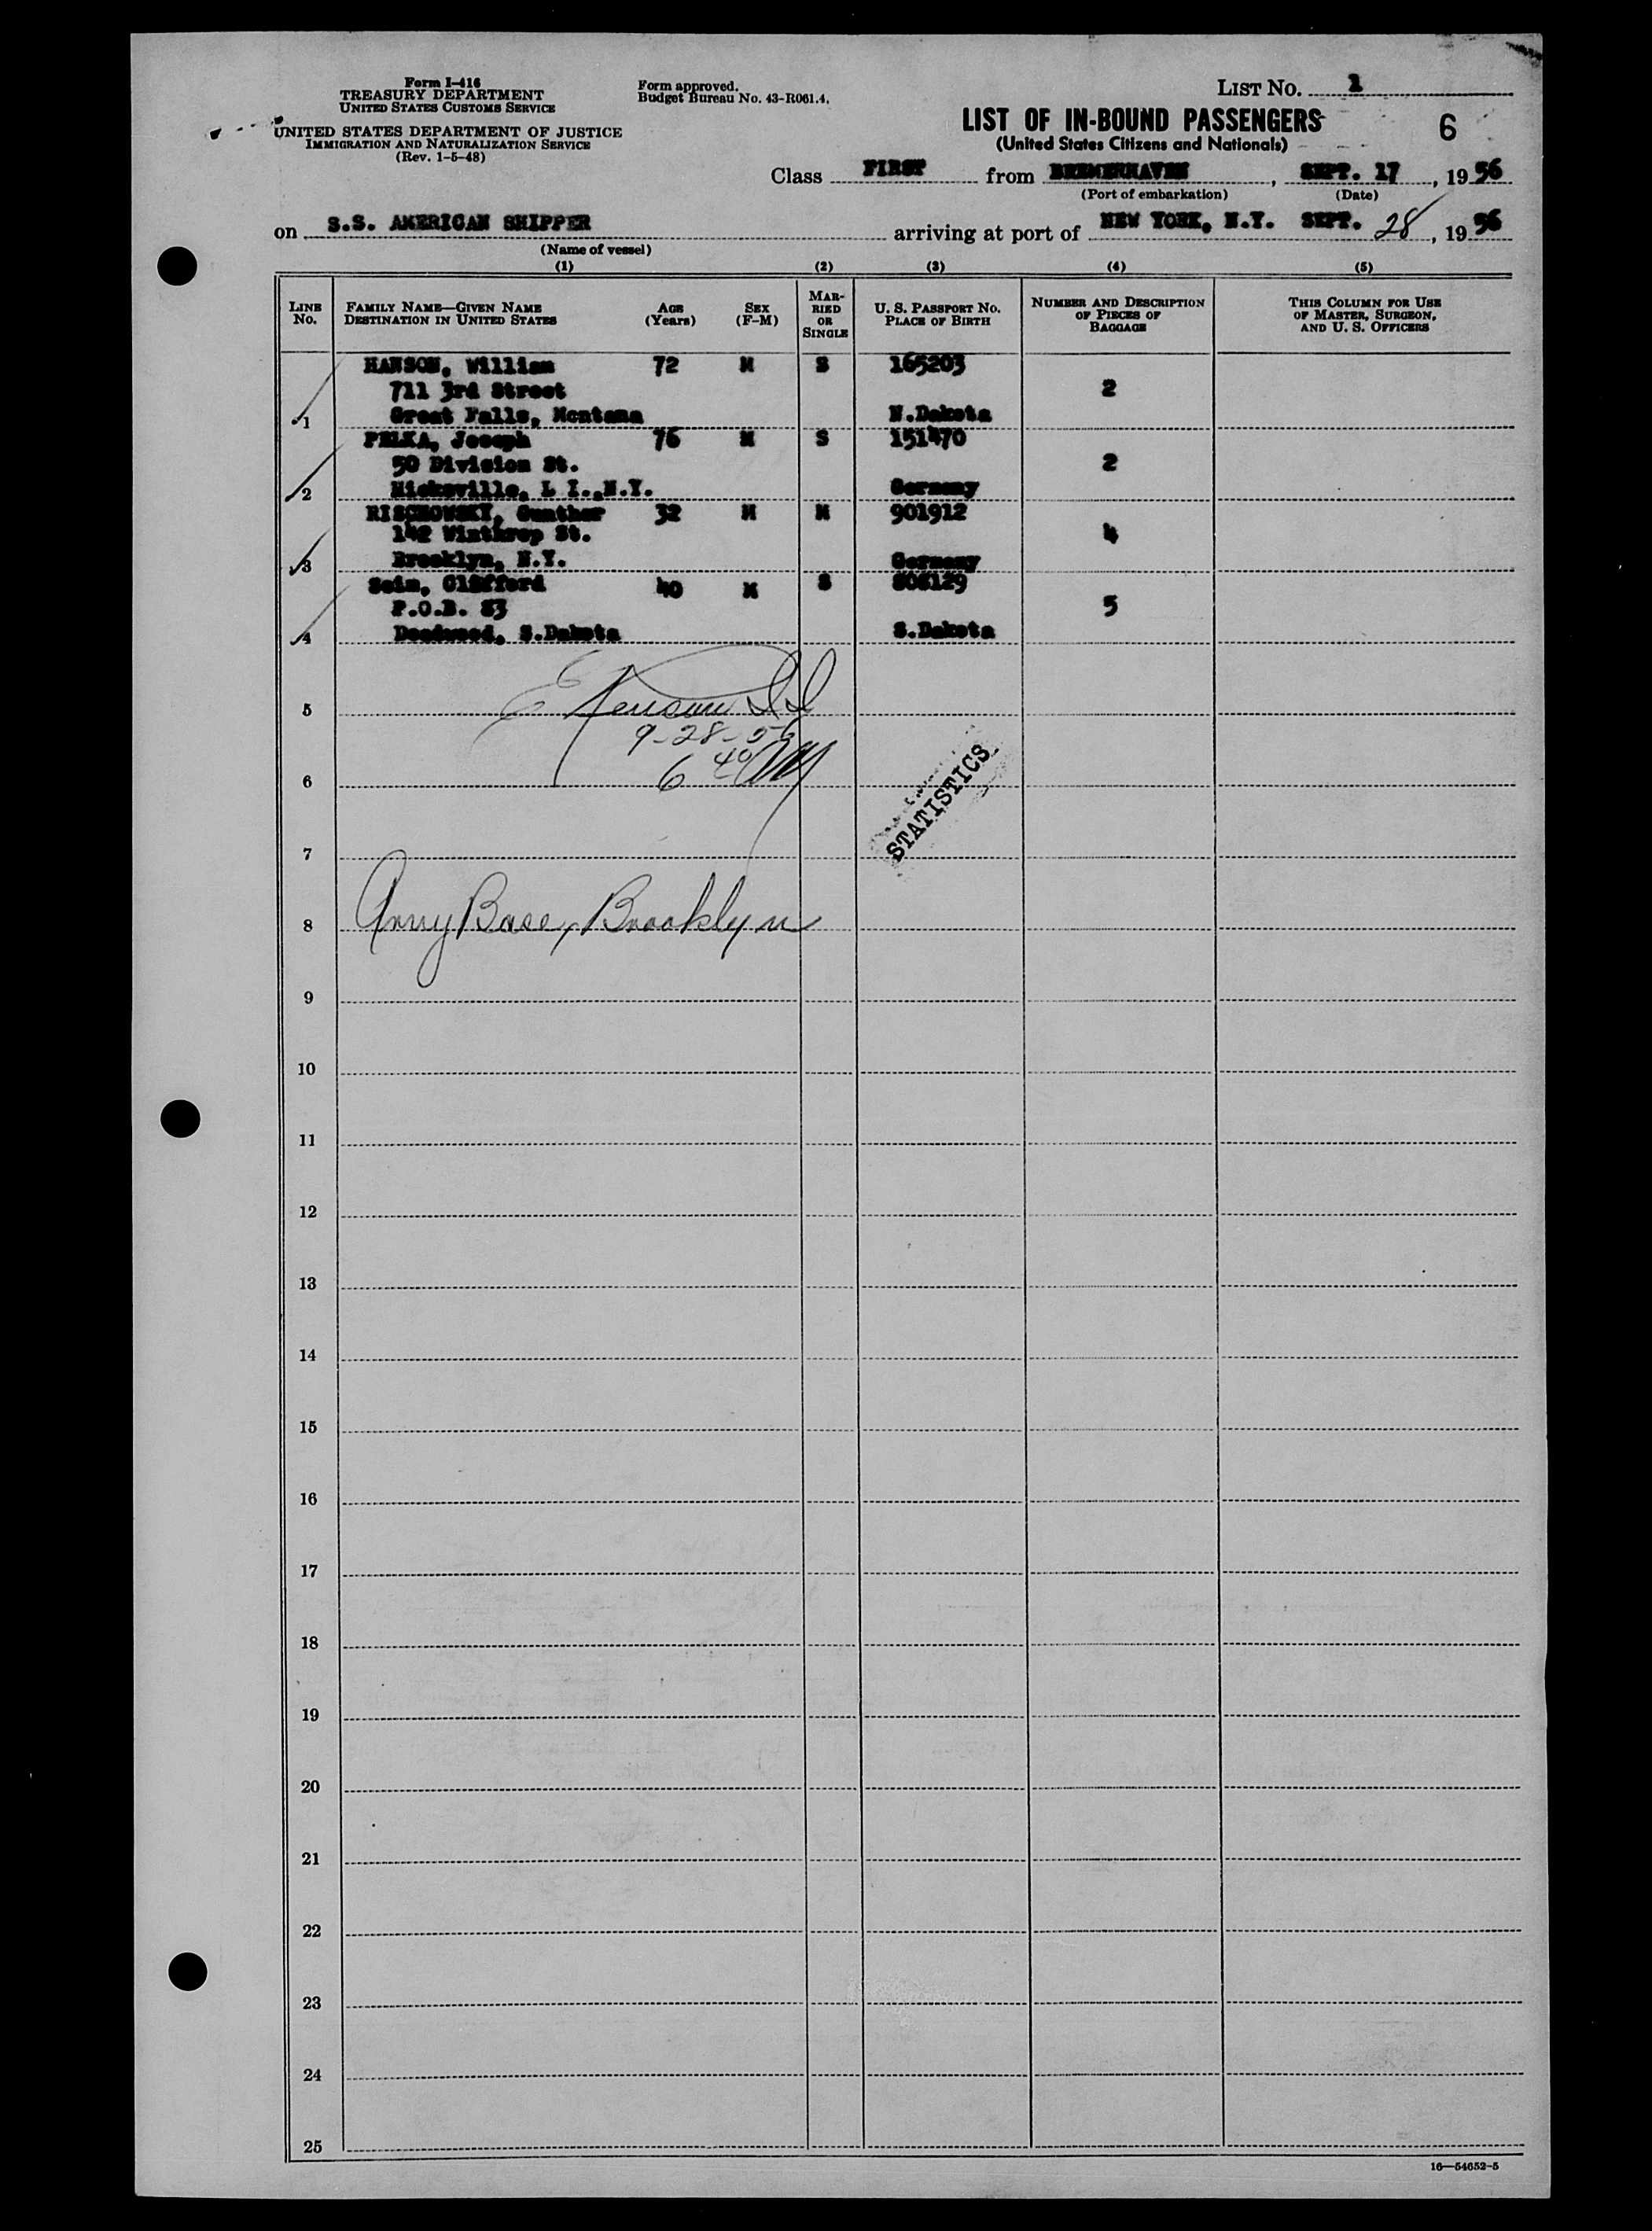 Form I-416
TREASURY DEPARTMENT
UNITED STATES CUSTOMS SERVICE
UNITED STATES DEPARTMENT OF JUSTICE
IMMIGRATION AND NATURALIZATION SERVICE
(Rev. 1-5-48)
Form approved.
Budget Bureau No. 43-R061.4.
LIST NO. 1
LIST OF IN-BOUND PASSENGERS
6
(United States Citizens and Nationals)
Class FIRST from BREMERHAVEN, SEPT. 17, 1956
(Port of embarkation) (Date)
on S.S. AMERICAN SHIPPER arriving at port of NEW YORK, N.Y. SEPT. 28, 1956
(Name of vessel)
(1) (2) (3) (4) (5)
LINE NO.
FAMILY NAME—GIVEN NAME
DESTINATION IN UNITED STATES
AGE (Years)
SEX (F-M)
MARRIED OR SINGLE
U. S. PASSPORT NO.
PLACE OF BIRTH
NUMBER AND DESCRIPTION OF PIECES OF BAGGAGE
THIS COLUMN FOR USE OF MASTER, SURGEON, AND U. S. OFFICERS
HANSON, William 72 M S 165203
711 3rd Street 2
1 Great Falls, Montana N.Dakota
PELKA, Joseph 76 M S 151470
50 Division St. 2
2 Hicksville, L I.,N.Y. Germany
RISCHOWSKY, Gunther 32 M M 901912
142 Winthrop St. 4
3 Brooklyn, N.Y. Germany
Sein, Clifford 40 M S
P.O.B. 83 5
4 Deadwood, S.Dakota S.Dakota
5
9-28-56
6 40
6
STATISTICS
7
8 Army Base, Brooklyn
9
10
11
12
13
14
15
16
17
18
19
20
21
22
23
24
25
16—54652-5